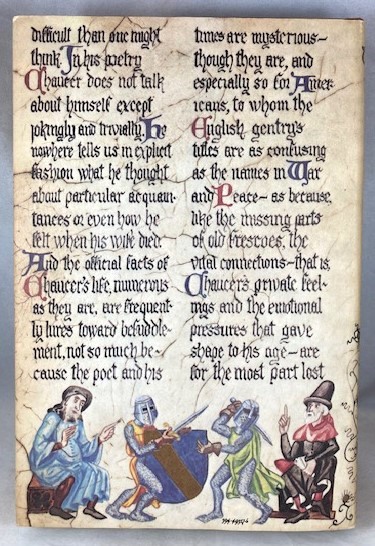 difficult than one might
think. In his poetry
Chaucer does not talk
about himself except
jokingly and trivially. He
nowhere tells us in explicit
fashion what he thought
about particular acquain-
tances or even how he
felt when his wife died.
And the official facts of
Chaucer's life, numerous
as they are, are frequent-
ly lures toward befuddle-
ment, not so much be-
cause the poet and his
times are mysterious—
though they are, and
especially so for Amer-
icans, to whom the
English gentry's
titles are as confusing
as the names in War
and Peace—as because,
like the missing parts
of old frescoes, the
vital connections—that is,
Chaucer's private feel-
ings and the emotional
pressures that gave
shape to his age—are
for the most part lost